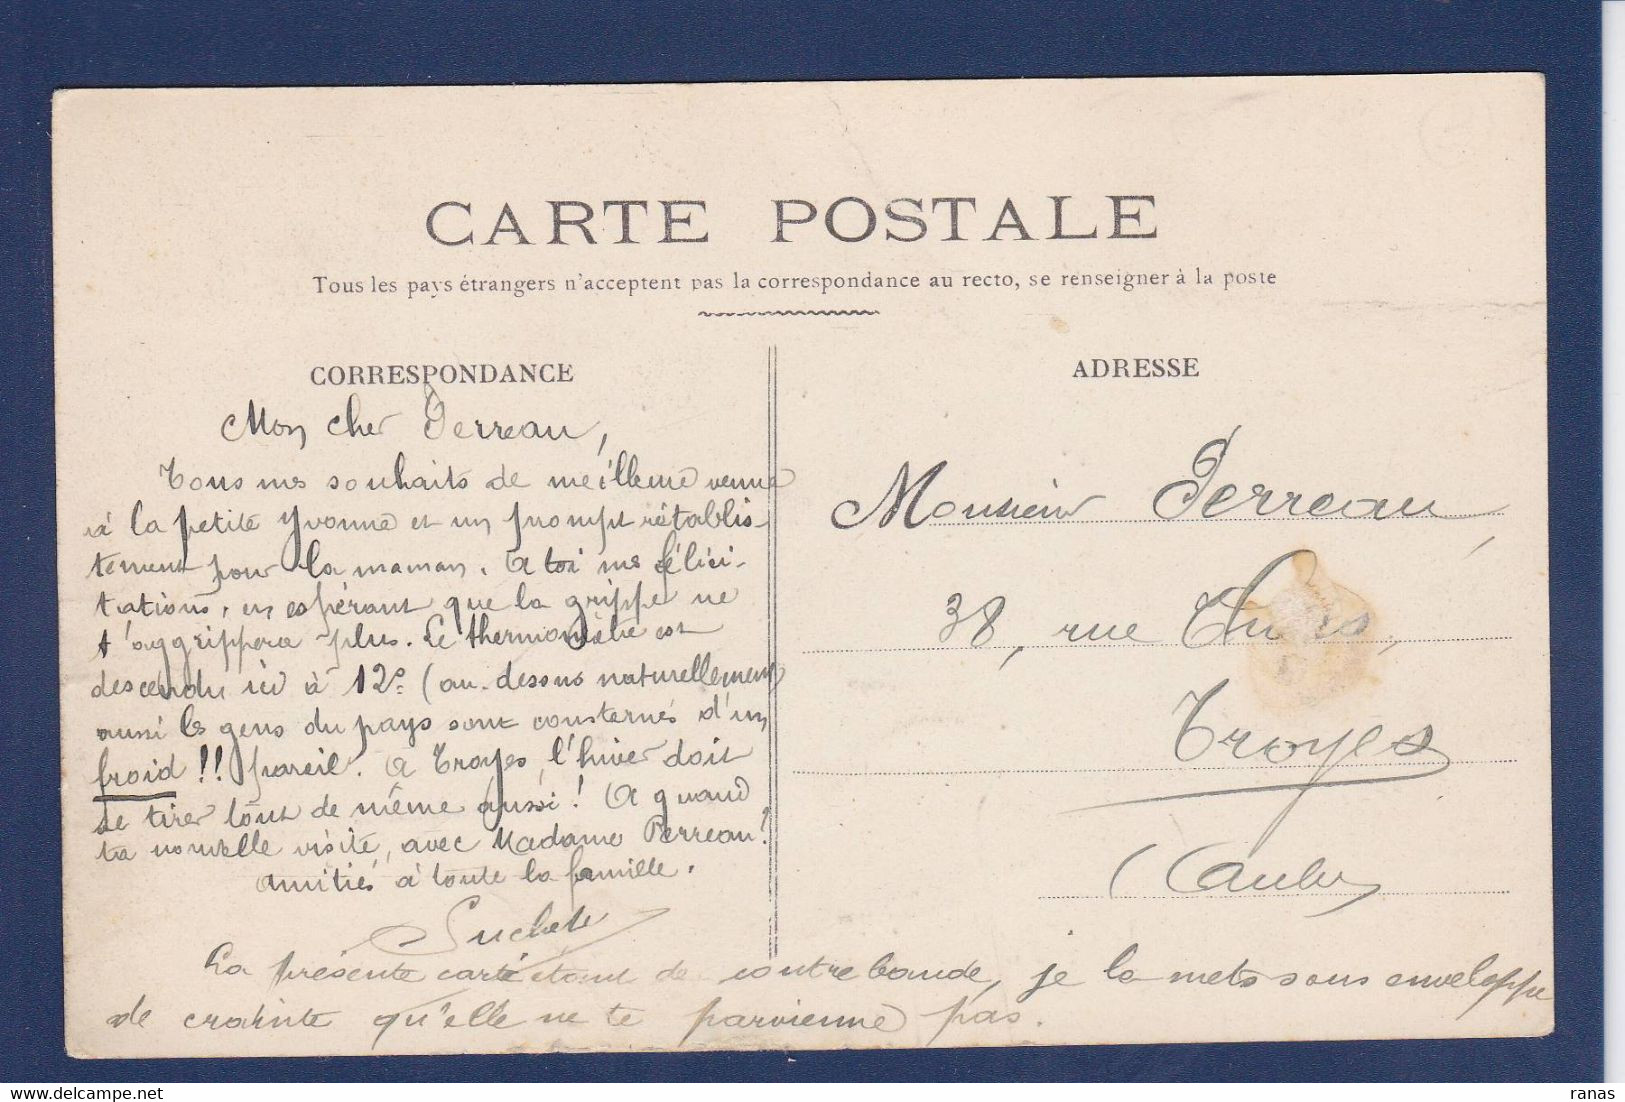 CARTE POSTALE
Tous les pays étrangers n'acceptent pas la correspondance au recto, se renseigner à la poste
CORRESPONDANCE
Mon cher Perreau,
Tous mes souhaits de meilleure venue
à la petite Yvonne et un prompt rétablis-
tement pour la maman. A toi mes félici-
tations, en espérant que la grippe ne
t'aggrippera plus. Le thermomètre est
descendu ici à 12°. (au-dessus naturellement)
aussi les gens du pays sont consternés d'un
froid!! pareil. A Troyes, l'hiver doit
se tirer tout de même aussi! A quand
ta nouvelle visite, avec Madame Perreau?
Amitiés à toute la famille.
La présente carte étant de contrebande, je la mets sous enveloppe
de crainte qu'elle ne te parvienne pas.
ADRESSE
Monsieur Perreau,
38, rue
Troyes
(Aube)
ranas